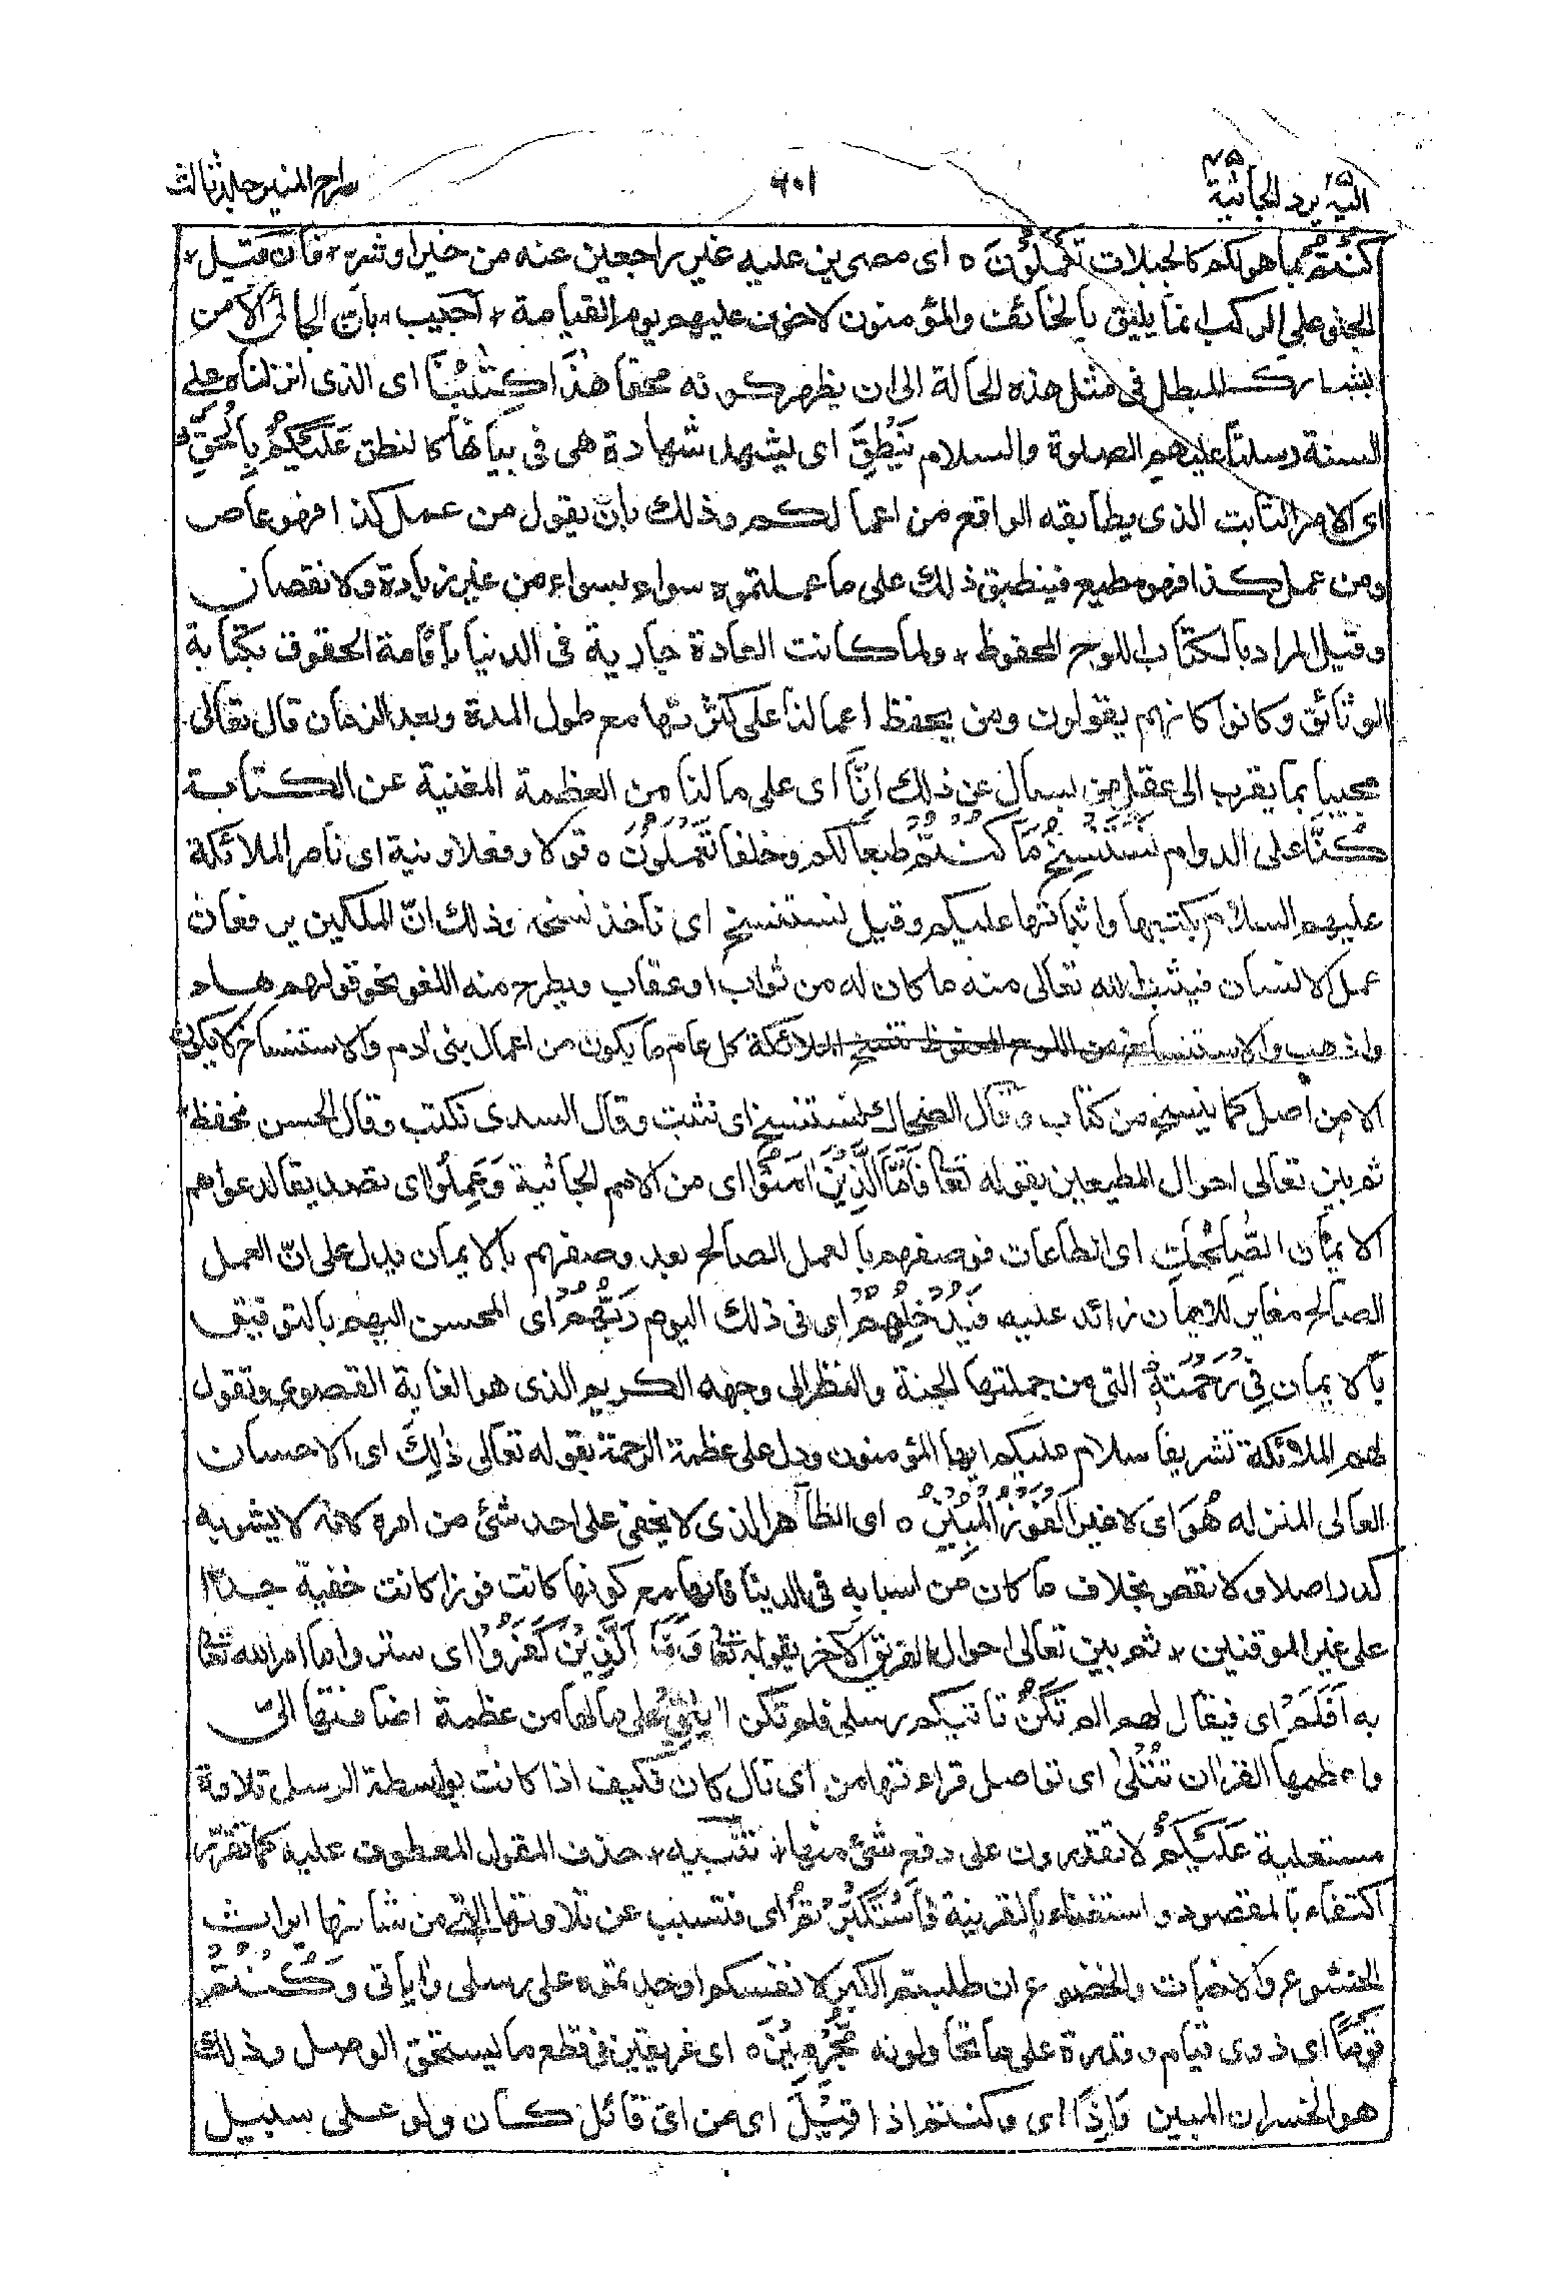 اليه يرد ٢٥ الجاثية ٤٥
٦٠١
سراج المنير جلد ثالث
كُنْتُمْ بما هو لكم كالجبلات تَعْمَلُوْنَ ٥ اى مصرين عليه غير راجعين عنه من خير او شر * فان قيل *
الجثو على الركب انما يليق بالخائف والمؤمنون لا خوف عليهم يوم القيامة * اجيب * بان الجاثى الآمن
يشارك المبطل فى مثل هذه الحالة الى ان يظهر كونه محقا هٰذَا كِتٰبُنَا اى الذى انزلناه على
السنة رسلنا عليهم الصلوة والسلام يَنْطِقُ اى يشهد شهادة هى فى بيانها كالنطق عَلَيْكُمْ بِالْحَقِّ
اى الامر الثابت الذى يطابقه الواقع من اعمالكم وذلك بان يقول من عمل كذا فهو عاص
ومن عمل كذا فهو مطيع فينطبق ذلك على ما عملتموه سواء بسواء من غير زيادة ولا نقصان
وقيل المراد بالكتاب اللوح المحفوظ * ولما كانت العادة جارية فى الدنيا باقامة الحقوق بكتابة
الوثائق وكانوا كانهم يقولون ومن يحفظ اعمالنا على كثرتها مع طول المدة وبعد الزمان قال تعالى
مجيبا بما يقرب الى عقل من يسأل عن ذلك اِنَّا اى على ما لنا من العظمة المغنية عن الكتابة
كُنَّا على الدوام نَسْتَنْسِخُ مَا كُنْتُمْ طبعا لكم وخلقا تَعْمَلُوْنَ ٥ قولا وفعلا ونية اى نامر الملائكة
عليهم السلام بكتبها واثباتها عليكم وقيل نستنسخ اى ناخذ نسخه وذلك انّ الملكين يرفعان
عمل الانسان فيثبت الله تعالى منه ما كان له من ثواب او عقاب ويطرح منه اللغو نحو قولهم هلم
واذهب والاستنساخ من اللوح المحفوظ تنسخ الملائكة كل عام ما يكون من اعمال بنى اٰدم والاستنساخ لا يكون
الا من اصل كما ينسخ من كتاب وقال الضحاك نستنسخ اى نثبت وقال السدى نكتب وقال الحسن نحفظ *
ثم بين تعالى احوال المطيعين بقوله تعا فَاَمَّا الَّذِيْنَ اٰمَنُوْا اى من الامم الجاثية وَعَمِلُوا اى تصديقا لدعواهم
الايمان الصّٰلِحٰتِ اى الطاعات فوصفهم بالعمل الصالح بعد وصفهم بالايمان يدل على انّ العمل
الصالح مغاير للايمان زائد عليه فَيُدْخِلُهُمْ اى فى ذلك اليوم رَبُّهُمْ اى المحسن اليهم بالتوفيق
بالايمان فِىْ رَحْمَتِهٖ التى من جملتها الجنة والنظر الى وجهه الكريم الذى هو الغاية القصوى وتقول
لهم الملائكة تشريفا سلام عليكم ايها المؤمنون ودل على عظمة الرحمة بقوله تعالى ذٰلِكَ اى الاحسان
العالى المنزله هُوَ اى لا غير الْفَوْزُ الْمُبِيْنُ ٥ اى الظاهر الذى لا يخفى على احد شئ من امره لانه لا يشوبه
كدر اصلا ولا نقص بخلاف ما كان من اسبابه فى الدنيا فانها مع كونها كانت فوزا كانت خفية جدا
على غير الموقنين * ثم بين تعالى احوال الفريق الآخر بقوله تعا وَاَمَّا الَّذِيْنَ كَفَرُوْا اى ستروا ما امر الله تعا
به اَفَلَمْ اى فيقال لهم الم تَكُنْ تاتيكم رسلى فلم تكن اٰيٰتِىْ على ما لها من عظمة اضافتها الىّ
واعظمها القران تُتْلٰى اى تواصل قراءتها من اى تال كان فكيف اذا كانت بواسطة الرسل تلاوة
مستعلية عَلَيْكُمْ لا تقدرون على دفع شئ منها * تنبيه * حذف المقول المعطوف عليه كما تقرر
اكتفاء بالمقصود واستغناء بالقرينة فَاسْتَكْبَرْتُمْ اى فتسبب عن تلاوتها التى من شانها ايراث
الخشوع والاخبات والخضوع ان طلبتم الكبر لانفسكم اوجدتموه على رسلى واٰياتى وَكُنْتُمْ
قَوْمًا اى ذوى قيام وقدرة على ما تحاولونه مُجْرِمِيْنَ ٥ اى غريقين فى قطع ما يستحق الوصل وذلك
هو الخسران المبين وَاِذَا اى وكنتم اذا قِيْلَ اى من اىّ قائل كان ولو على سبيل